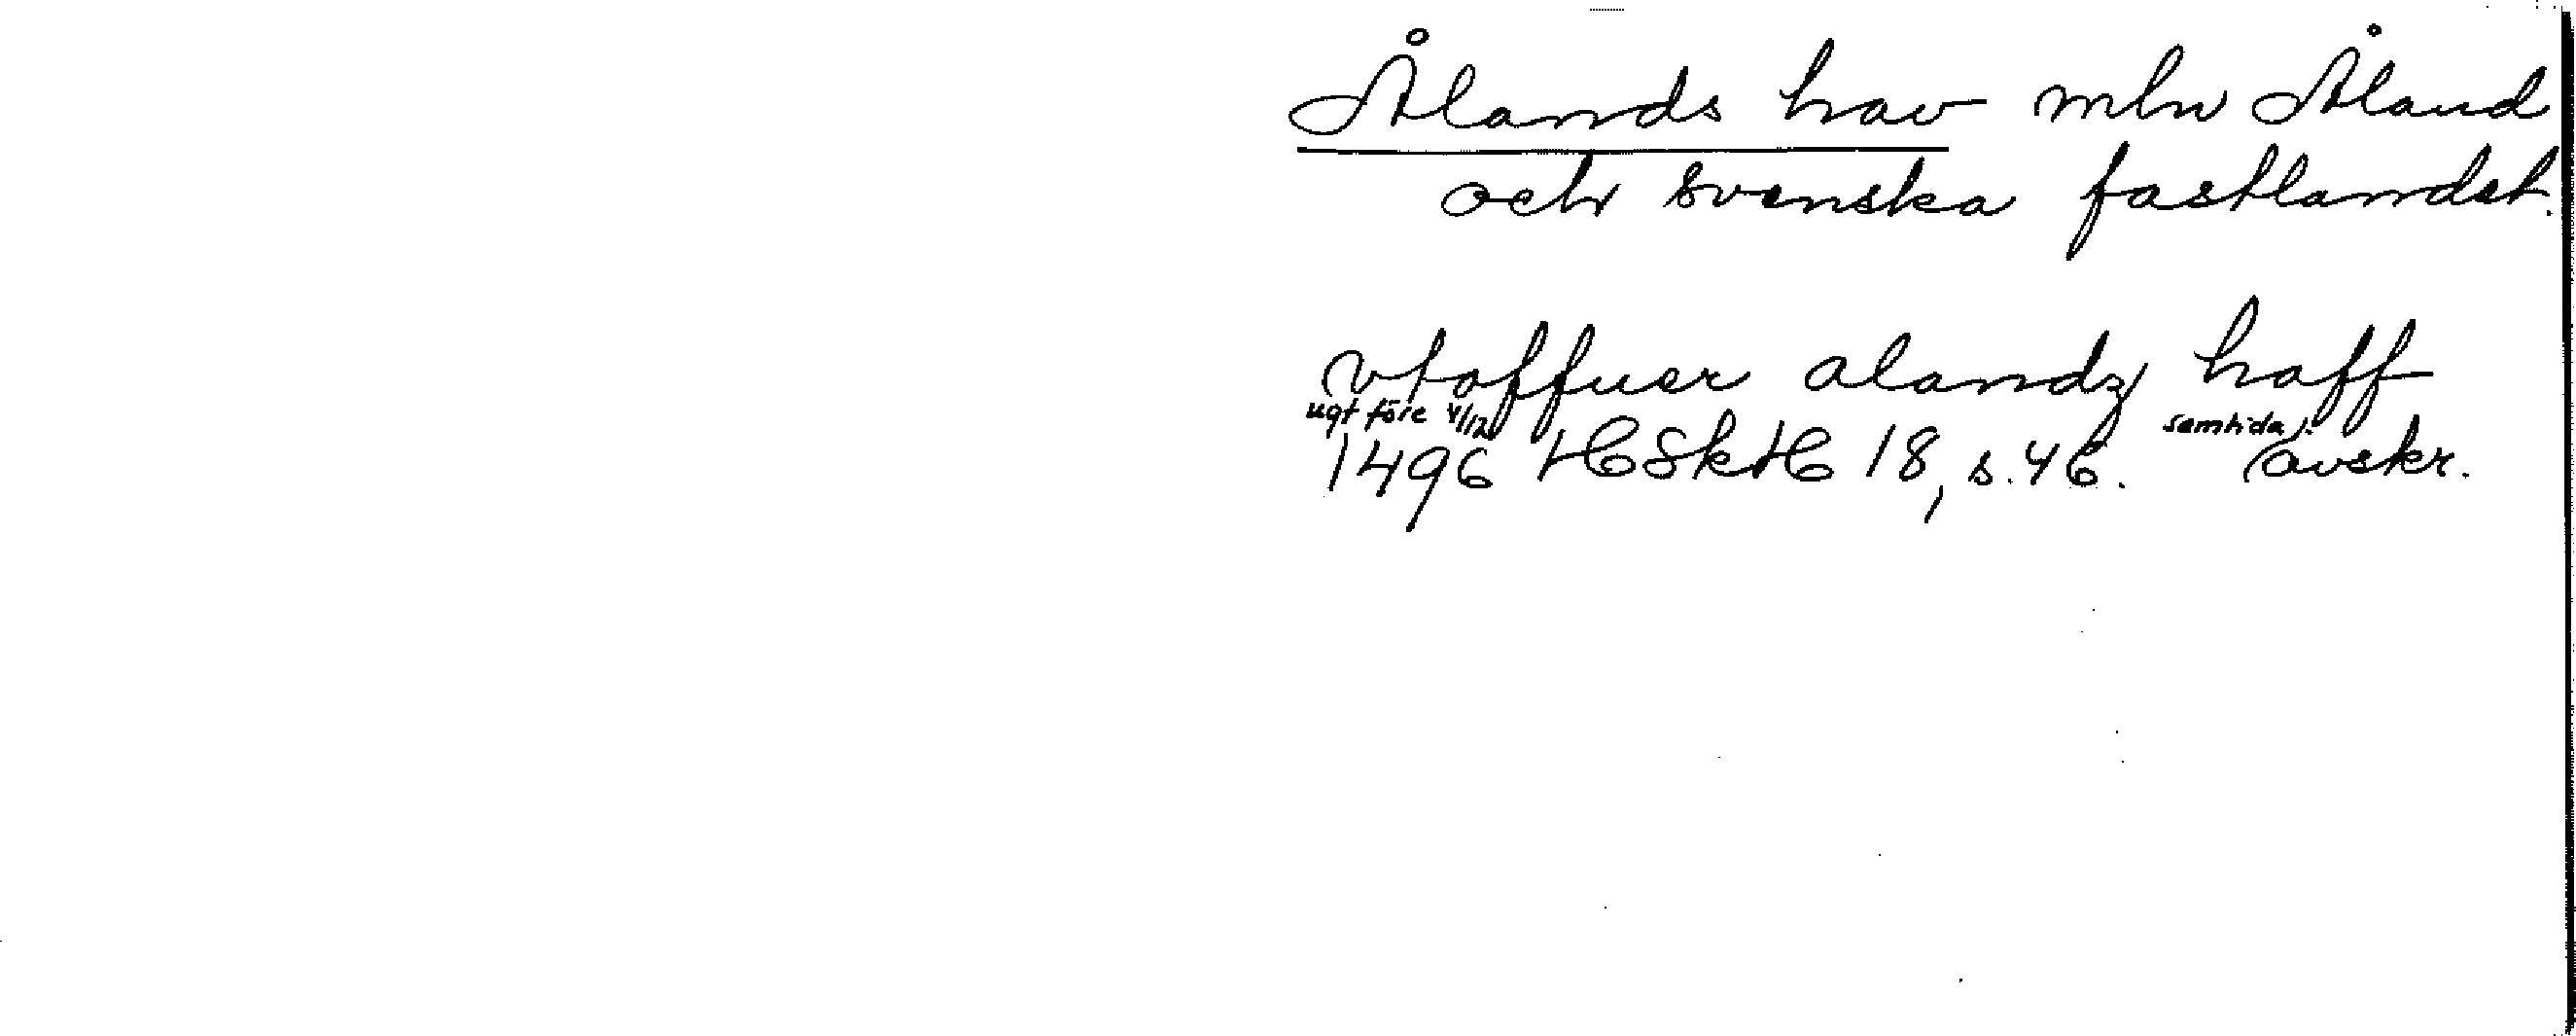 Ålands hav mln Åland
och svenska fastlandet.
vtoffuer alandz haff
ugt före 4/12 samtida
1496 HSkH 18, s. 46. avskr.